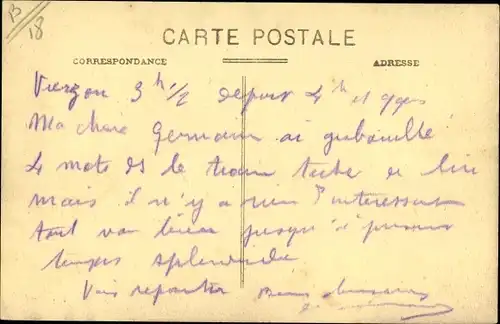 B
18
CARTE POSTALE
CORRESPONDANCE
ADRESSE
Vierzon 3h 1/2 depuis 4h et qques
Ma chère Germaine ai gribouillé
4 mots ds le train de
mais il n'y a rien d'intéressant
tout va bien jusqu'à
temps splendide
Vais repartir Bons